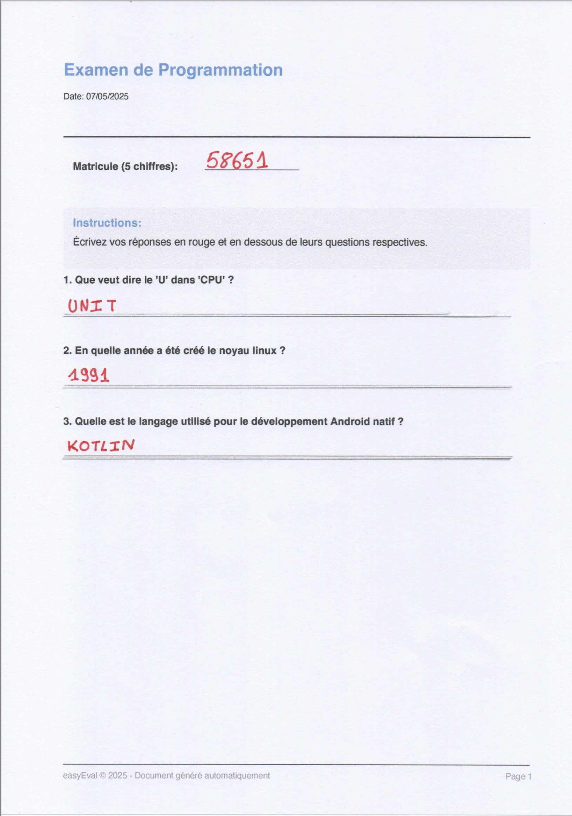 Examen de Programmation
Date: 07/05/2025
Matricule (5 chiffres): 58651
Instructions:
Écrivez vos réponses en rouge et en dessous de leurs questions respectives.
1. Que veut dire le 'U' dans 'CPU' ?
UNIT
2. En quelle année a été créé le noyau linux ?
1991
3. Quelle est le langage utilisé pour le développement Android natif ?
KOTLIN
easyEval © 2025 - Document généré automatiquement
Page 1